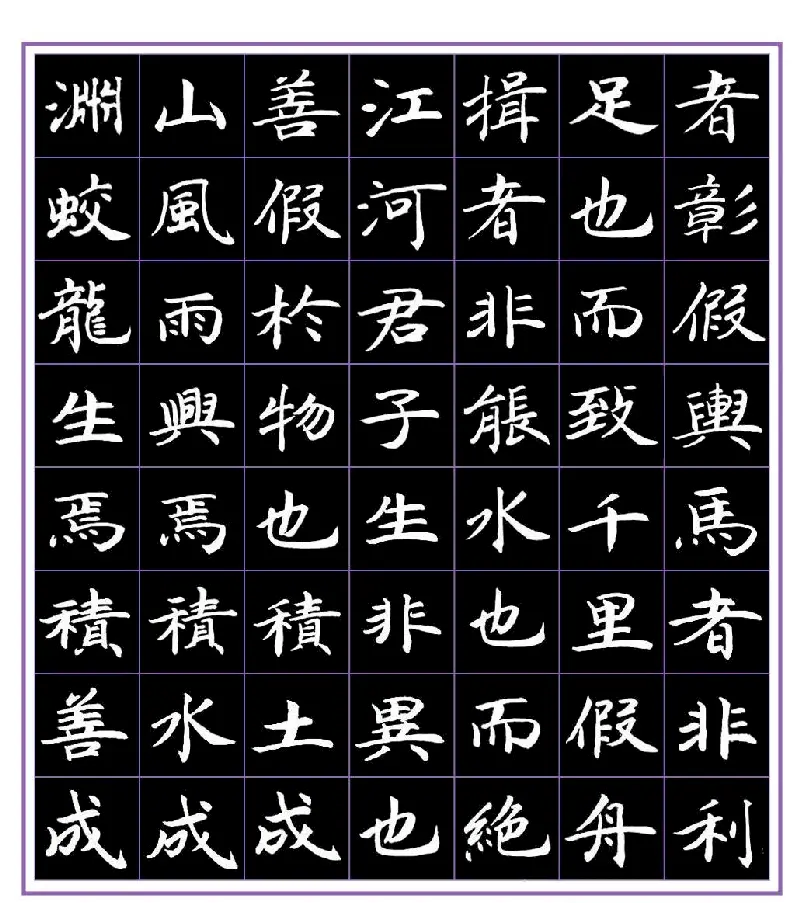 者彰假輿馬者非利
足也而致千里假舟
揖者非能水也而絕
江河君子生非異也
善假於物也積土成
山風雨興焉積水成
淵蛟龍生焉積善成